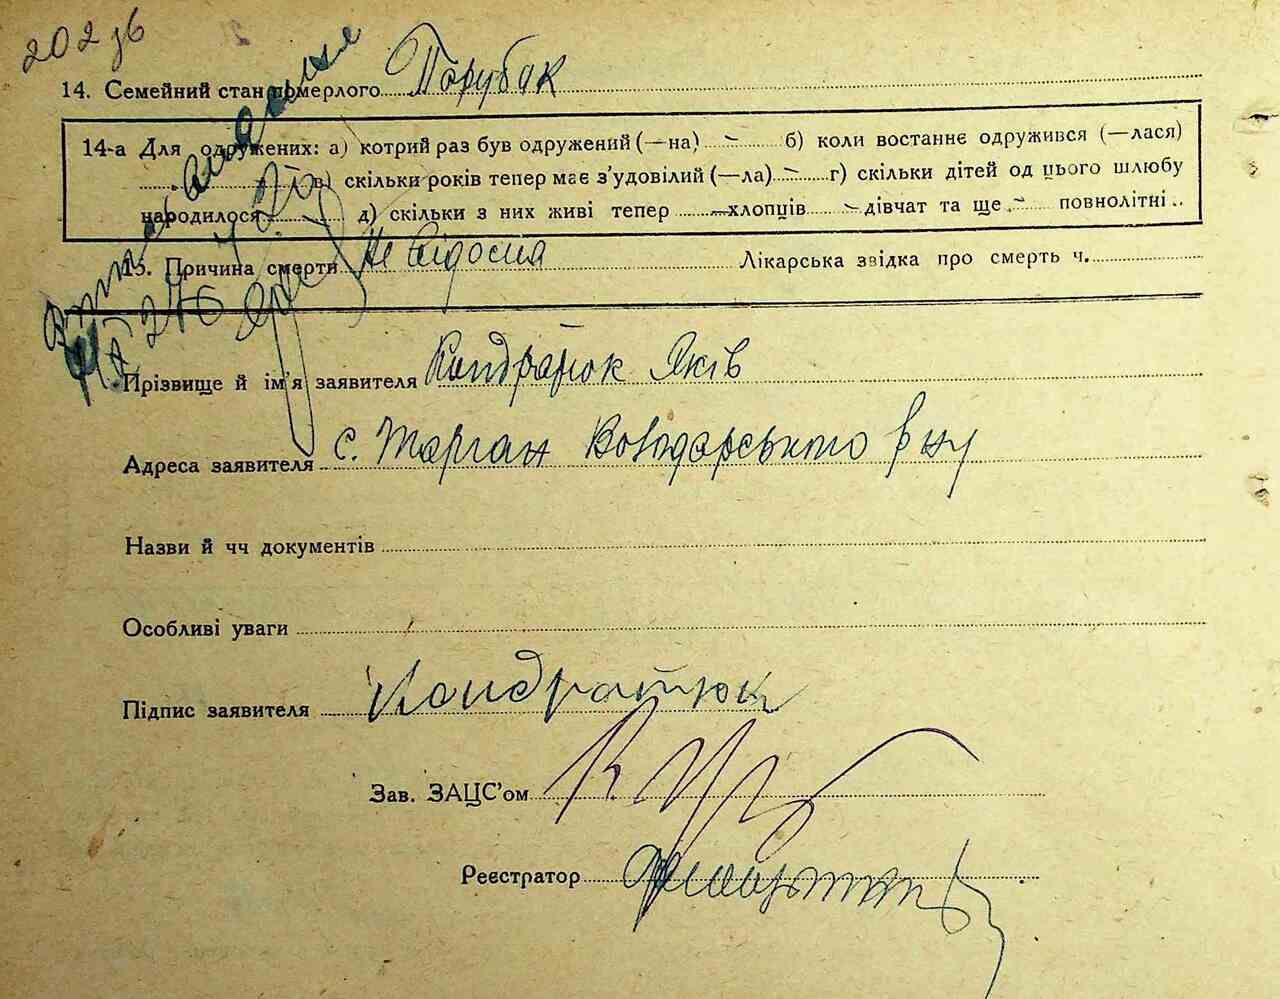 202 зв
14. Семейний стан померлого Парубак
14-а Для одружених: а) котрий раз був одружений (—на) – б) коли востаннє одружився (—лася)
в) скільки років тепер має з'удовілий (—ла) – г) скільки дітей од цього шлюбу
народилося д) скільки з них живі тепер – хлопців – дівчат та ще – повнолітні
15. Причина смерти Не відома Лікарська звідка про смерть ч.
Прізвище й ім'я заявителя Кондратюк Яків
Адреса заявителя с. Тарган Володарського р ну
Назви й чч документів
Особливі уваги
Підпис заявителя Кондратюк
Зав. ЗАЦС'ом
Реєстратор